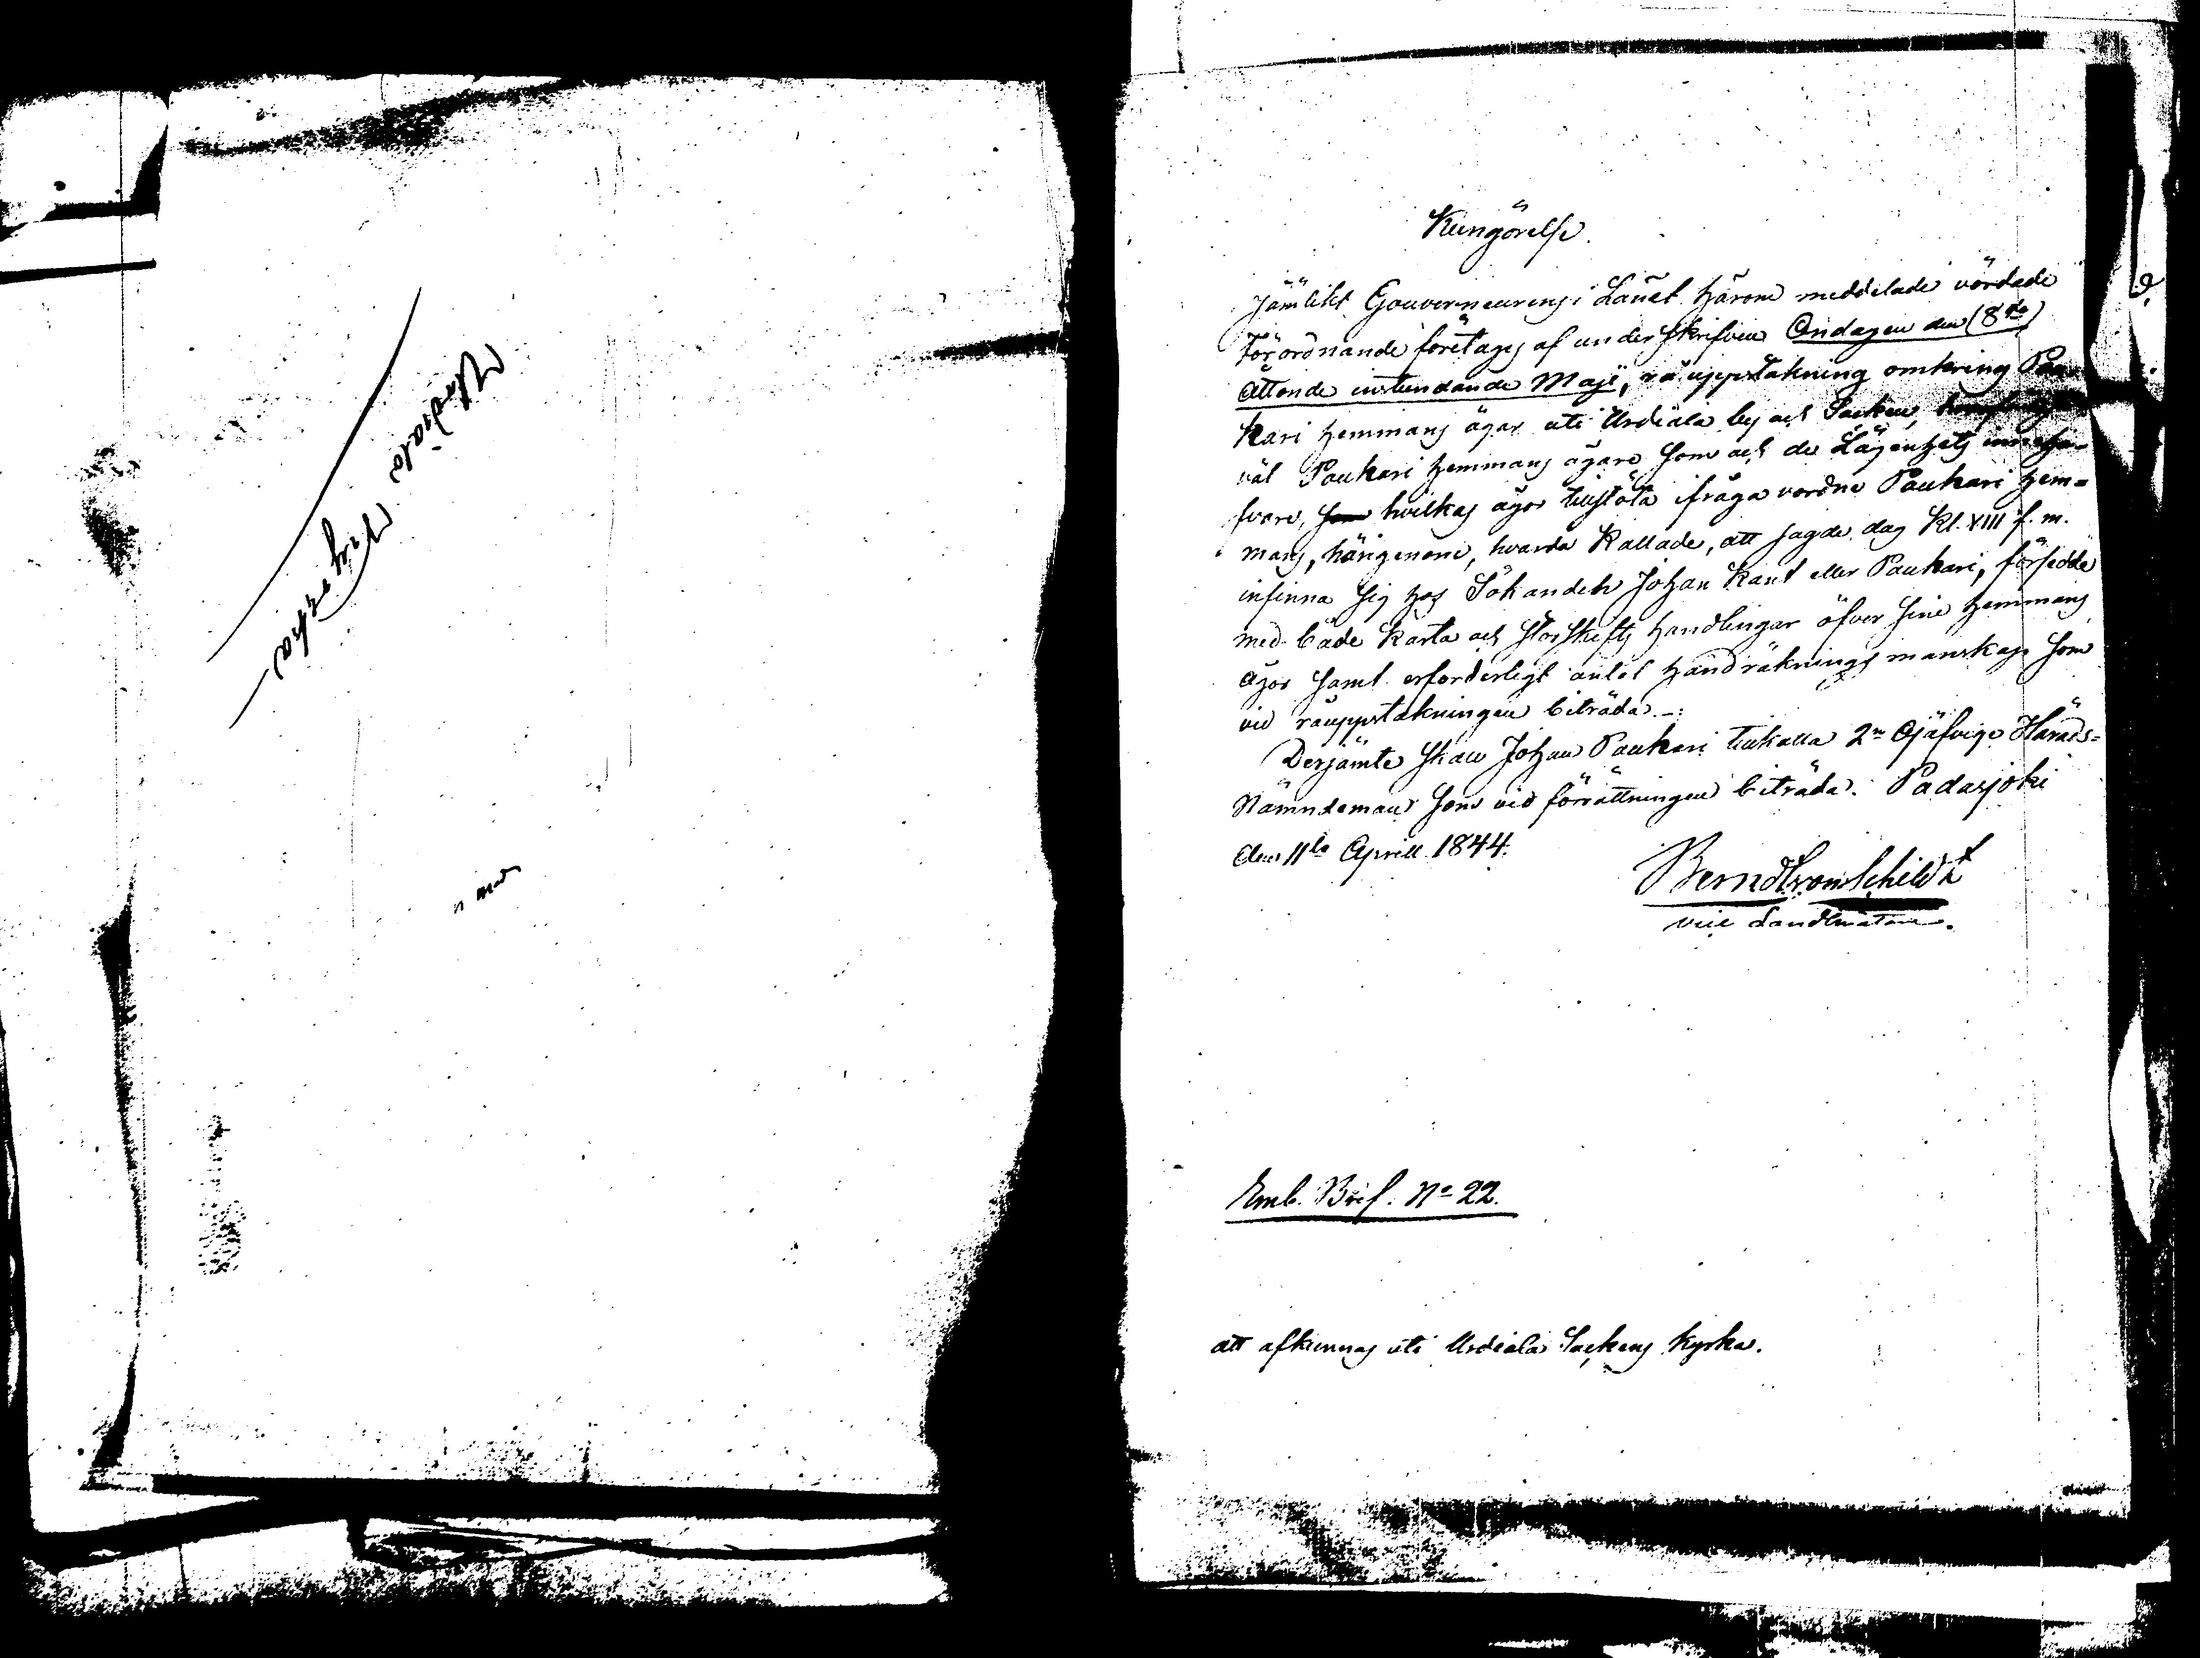 Urdiala
Kyrka
n med
Kungörelse.
Jämlikt Gouverneurens i Länet härom meddelade vördade
förordnande företages af underskrifven Onsdagen den (8de)
Åttonde instundande Maji, råuppstakning omkring Pau-
kari hemmans ägor uti Urdiala by och Socken,
väl Paukari hemmans ägare som ock de Lägenhets inneha-
fvare, som hvilkas ägor tillstöta ifråga vordne Paukari hem=
mans, härigenom, hvarda kallade, att sagde dag Kl. VIII f. m.
infinna sig hos Sökanden Johan Kant eller Paukari, försedde
med både karta och storskifts handlingar öfver sine hemmans
ägor samt erforderligt antal handräknings manskap som
vid råuppstakningen biträda.-:
Derjämte skall Johan Paukari tillkalla 2ne Ojäfvige Härads=
Nämndeman som vid förrättningen biträda. Padasjoki
den 11te Aprill 1844.
Berndt vom Schildt
vice Landtmätare.
Emb. Bref. No 22.
att afkunnas uti Urdiala Sockens kyrka.